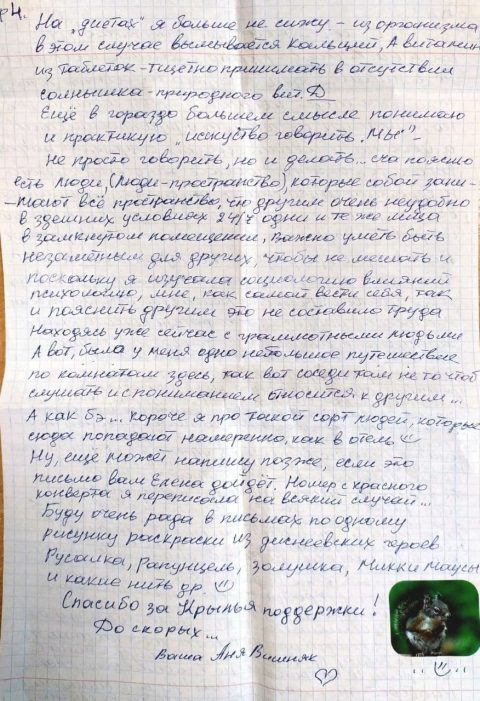 р 4.
На „диетах" я больше не сижу – из организма
в этом случае вымывается кальций, А витамин
из таблеток – тщетно принимать в отсутствии
солнышка – природного вит. Д
Ещё в гораздо большем смысле понимаю
и практикую „искусство говорить „МЫ"" –
Не просто говорить, но и делать... ща поясню
есть люди, (люди – пространство) которые собой зани-
-мают всё пространство, что другим очень неудобно
в здешних условиях 24/7 одни и те же лица
в замкнутом помещении, Важно уметь быть
незаметным для других, чтобы не мешать и
поскольку я изучала социологию влияний
психологию, мне, как самой вести себя, так
и пояснить другим это не составило труда
Находясь уже сейчас с грамотными людьми
А вот, была у меня одно небольшое путешествие
по комнатам здесь, так вот соседи там не то чтоб
слушать и с пониманием относится к другим...
А как бэ... короче я про такой сорт людей, которые
сюда попадают намеренно, как в отель
Ну, ещё может напишу позже, если это
письмо вам Елена дойдёт. Номер с красного
конверта я переписала на всякий случай...
Буду очень рада в письмах по одному
рисунку раскраски из диснеевских героев
Русалка, Рапунцель, Золушка, Микки Маусы
и какие нить др.
Спасибо за Крылья поддержки!
До скорых...
Ваша Аня Вишняк